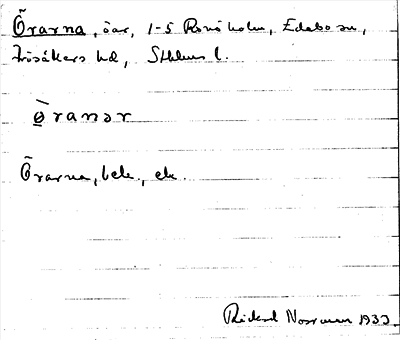 Örarna, öar, 1-5 Rönöholm, Edebo sn,
Frösåkers hd, Sthlms l.
ø̀ranər
Örarna, bek., ek.
Rickard Norrman 1933